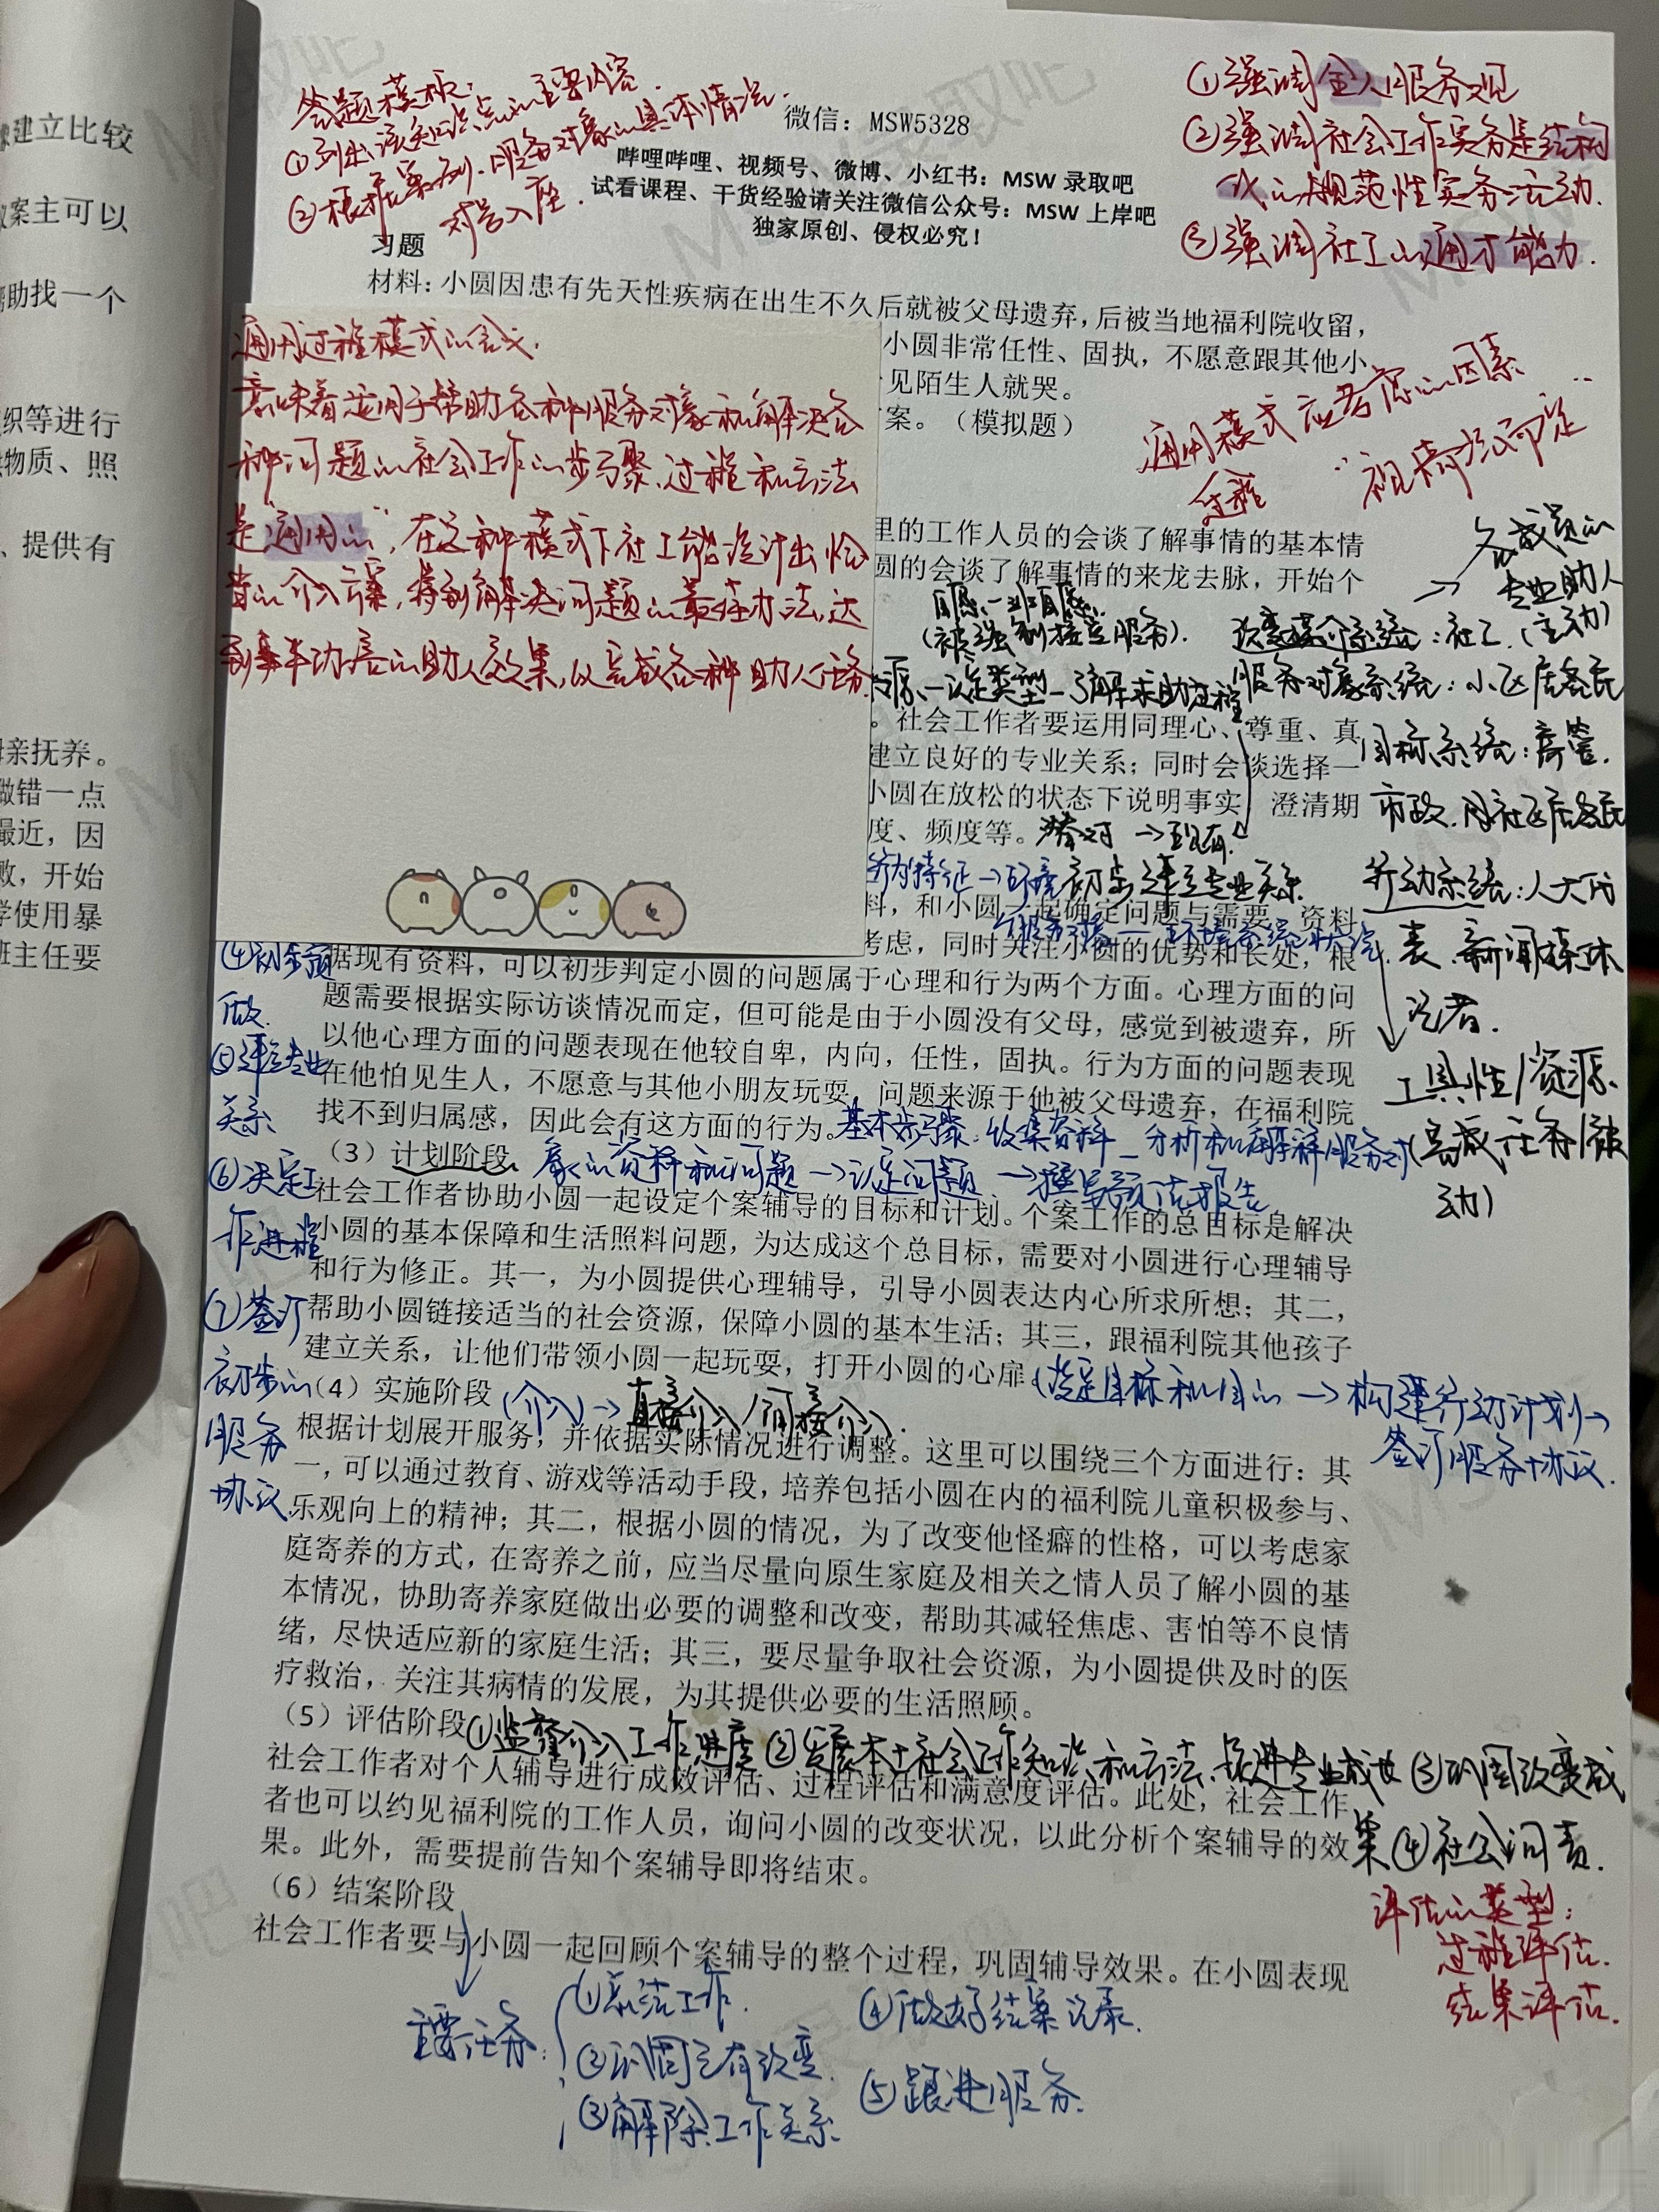 建立比较
案主可以
帮助找一个
织等进行
物质、照
、提供有
亲抚养。
做错一点
最近，因
败，开始
学使用暴
班主任要
答题模板：
①列出该知识点的主要内容．
②根据案例．服务对象的具体情况．
对号入座．
①强调全人服务观
②强调社会工作实务是结构
化的规范性实务活动．
③强调社工的通才能力．
微信：MSW5328
哔哩哔哩、视频号、微博、小红书：MSW 录取吧
试看课程、干货经验请关注微信公众号：MSW 上岸吧
独家原创、侵权必究！
习题
材料：小圆因患有先天性疾病在出生不久后就被父母遗弃，后被当地福利院收留，
小圆非常任性、固执，不愿意跟其他小
见陌生人就哭。
案。（模拟题）
通用过程模式的含义．
意味着适用于帮助各种服务对象和解决各
种问题的社会工作的步骤、过程和方法
是“通用的”，在这种模式下社工能设计出恰
当的介入方案，得到解决问题的最佳办法，达
到事半功倍的助人效果，以完成各种助人任务．
通用模式应考虑的因素
过程
里的工作人员的会谈了解事情的基本情
圆的会谈了解事情的来龙去脉，开始个
自愿、非自愿
（被强制接受服务）．
来源—设定类型—了解求助过程
。社会工作者要运用同理心、尊重、真
建立良好的专业关系；同时会谈选择一
小圆在放松的状态下说明事实，澄清期
度、频度等。潜在→现有
各成员的
专业助人
改变媒介系统：社工（主动）
服务对象系统：小区居民
目标系统：房管．
市政、周社区居民
行动系统：人大代
表、新闻媒体
记者．
工具性/资源
（完成任务/被
动）
初步建立专业关系
料，和小圆一起确定问题与需要。资料
考虑，同时关注小圆的优势和长处，根
据现有资料，可以初步判定小圆的问题属于心理和行为两个方面。心理方面的问
题需要根据实际访谈情况而定，但可能是由于小圆没有父母，感觉到被遗弃，所
以他心理方面的问题表现在他较自卑，内向，任性，固执。行为方面的问题表现
在他怕见生人，不愿意与其他小朋友玩耍，问题来源于他被父母遗弃，在福利院
找不到归属感，因此会有这方面的行为。
基本步骤：收集资料—分析和解释服务对
象的资料和问题→认定问题→撰写预估报告
④初步预
做．
⑤建立专业
关系
⑥决定工
作进程
⑦签订
初步的
服务
协议
（3）计划阶段
社会工作者协助小圆一起设定个案辅导的目标和计划。个案工作的总目标是解决
小圆的基本保障和生活照料问题，为达成这个总目标，需要对小圆进行心理辅导
和行为修正。其一，为小圆提供心理辅导，引导小圆表达内心所求所想；其二，
帮助小圆链接适当的社会资源，保障小圆的基本生活；其三，跟福利院其他孩子
建立关系，让他们带领小圆一起玩耍，打开小圆的心扉
（设定目标和目的→构建行动计划→
签订服务协议．
（4）实施阶段（介入）→直接介入/间接介入．
根据计划展开服务，并依据实际情况进行调整。这里可以围绕三个方面进行：其
一，可以通过教育、游戏等活动手段，培养包括小圆在内的福利院儿童积极参与、
乐观向上的精神；其二，根据小圆的情况，为了改变他怪癖的性格，可以考虑家
庭寄养的方式，在寄养之前，应当尽量向原生家庭及相关之情人员了解小圆的基
本情况，协助寄养家庭做出必要的调整和改变，帮助其减轻焦虑、害怕等不良情
绪，尽快适应新的家庭生活；其三，要尽量争取社会资源，为小圆提供及时的医
疗救治，关注其病情的发展，为其提供必要的生活照顾。
（5）评估阶段①监督介入工作进度②发展本土社会工作知识和方法、促进专业成长③巩固改变成
果④社会问责．
社会工作者对个人辅导进行成效评估、过程评估和满意度评估。此处，社会工作
者也可以约见福利院的工作人员，询问小圆的改变状况，以此分析个案辅导的效
果。此外，需要提前告知个案辅导即将结束。
评估的类型：
过程评估．
结果评估．
（6）结案阶段
社会工作者要与小圆一起回顾个案辅导的整个过程，巩固辅导效果。在小圆表现
主要任务：
①总结工作．
②巩固已有改变．
③解除工作关系
④做好结案记录．
⑤跟进服务．